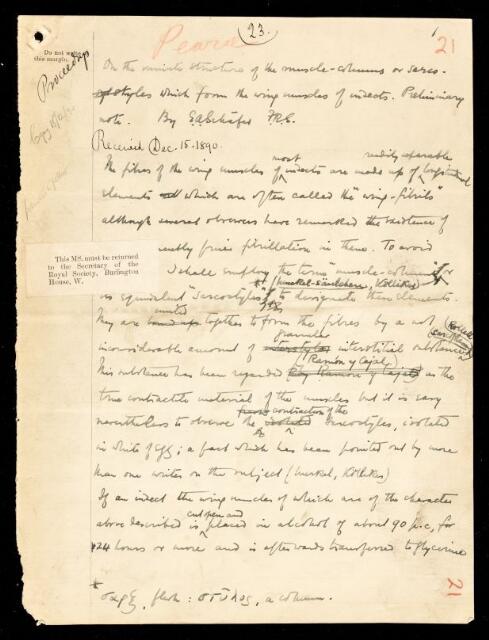 Pearce
23.
21
Do not write
this margin.
Proceedings
On the minute structure of the muscle-columns or sarco-
styles which form the wing muscles of insects. Preliminary
note. By E.A. Schäfer F.R.S.
Received Dec. 15. 1890.
most readily separable
The fibres of the wing muscles of insects are made up of longitudinal
elements which are often called the "wing-fibrils"
although several observers have remarked the existence of
finer fibrillation in them. To avoid
This MS. must be returned
to the Secretary of the
Royal Society, Burlington
House, W.
I shall employ the term "muscle-columns" or
(muskel-säulchen, Kölliker)
its equivalent "sarcostyles"* to designate these elements.
united
They are together to form the fibres by a not
granular
inconsiderable amount of interstitial substance
(Ramón y Cajal)
This substance has been regarded as the
true contractile material of the muscles but it is easy
contraction of the
nevertheless to observe the sarcostyles, isolated
in white of egg; a fact which has been pointed out by more
than one writer on the subject (Merkel, Kölliker)
If an insect the wing muscles of which are of the character
cut open and
above described is placed in alcohol of about 90 p.c. for
24 hours or more and is afterwards transferred to glycerine
* σαρξ, flesh: στῦλος, a column.
21